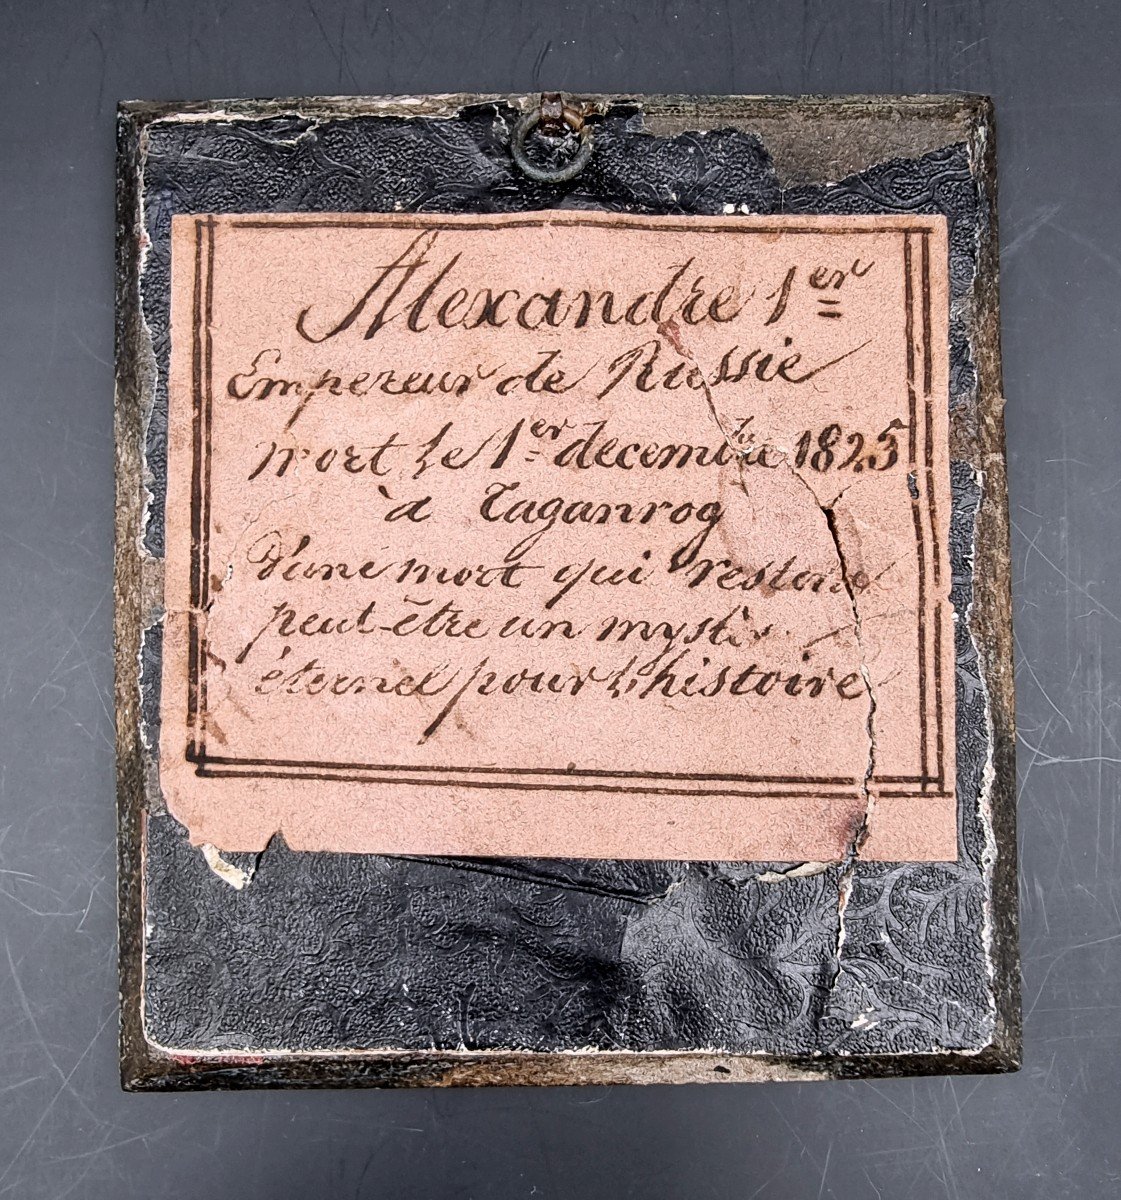 Alexandre 1er
Empereur de Russie
mort le 1er decembre 1825
à Taganrog
d'une mort qui restera
peut-être un
éternel pour l'histoire